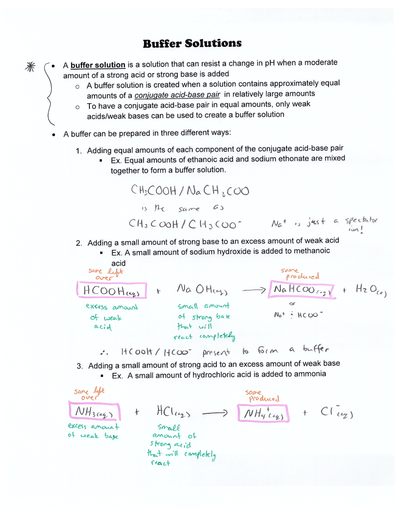 Buffer Solutions
• A buffer solution is a solution that can resist a change in pH when a moderate
amount of a strong acid or strong base is added
o A buffer solution is created when a solution contains approximately equal
amounts of a conjugate acid-base pair in relatively large amounts
o To have a conjugate acid-base pair in equal amounts, only weak
acids/weak bases can be used to create a buffer solution
• A buffer can be prepared in three different ways:
1. Adding equal amounts of each component of the conjugate acid-base pair
▪ Ex. Equal amounts of ethanoic acid and sodium ethonate are mixed
together to form a buffer solution.
CH3COOH/NaCH3COO
is the same as
CH3COOH/CH3COO⁻ Na⁺ is just a spectator
ion!
2. Adding a small amount of strong base to an excess amount of weak acid
▪ Ex. A small amount of sodium hydroxide is added to methanoic
acid
some left over some produced
HCOOH(aq) + NaOH(aq) → NaHCOO(aq) + H2O(l)
excess amount of weak acid
small amount of strong base that will react completely
or
Na⁺ : HCOO⁻
∴ HCOOH/HCOO⁻ present to form a buffer
3. Adding a small amount of strong acid to an excess amount of weak base
▪ Ex. A small amount of hydrochloric acid is added to ammonia
some left over some produced
NH3(aq) + HCl(aq) → NH4⁺(aq) + Cl⁻(aq)
excess amount of weak base
small amount of strong acid that will completely react